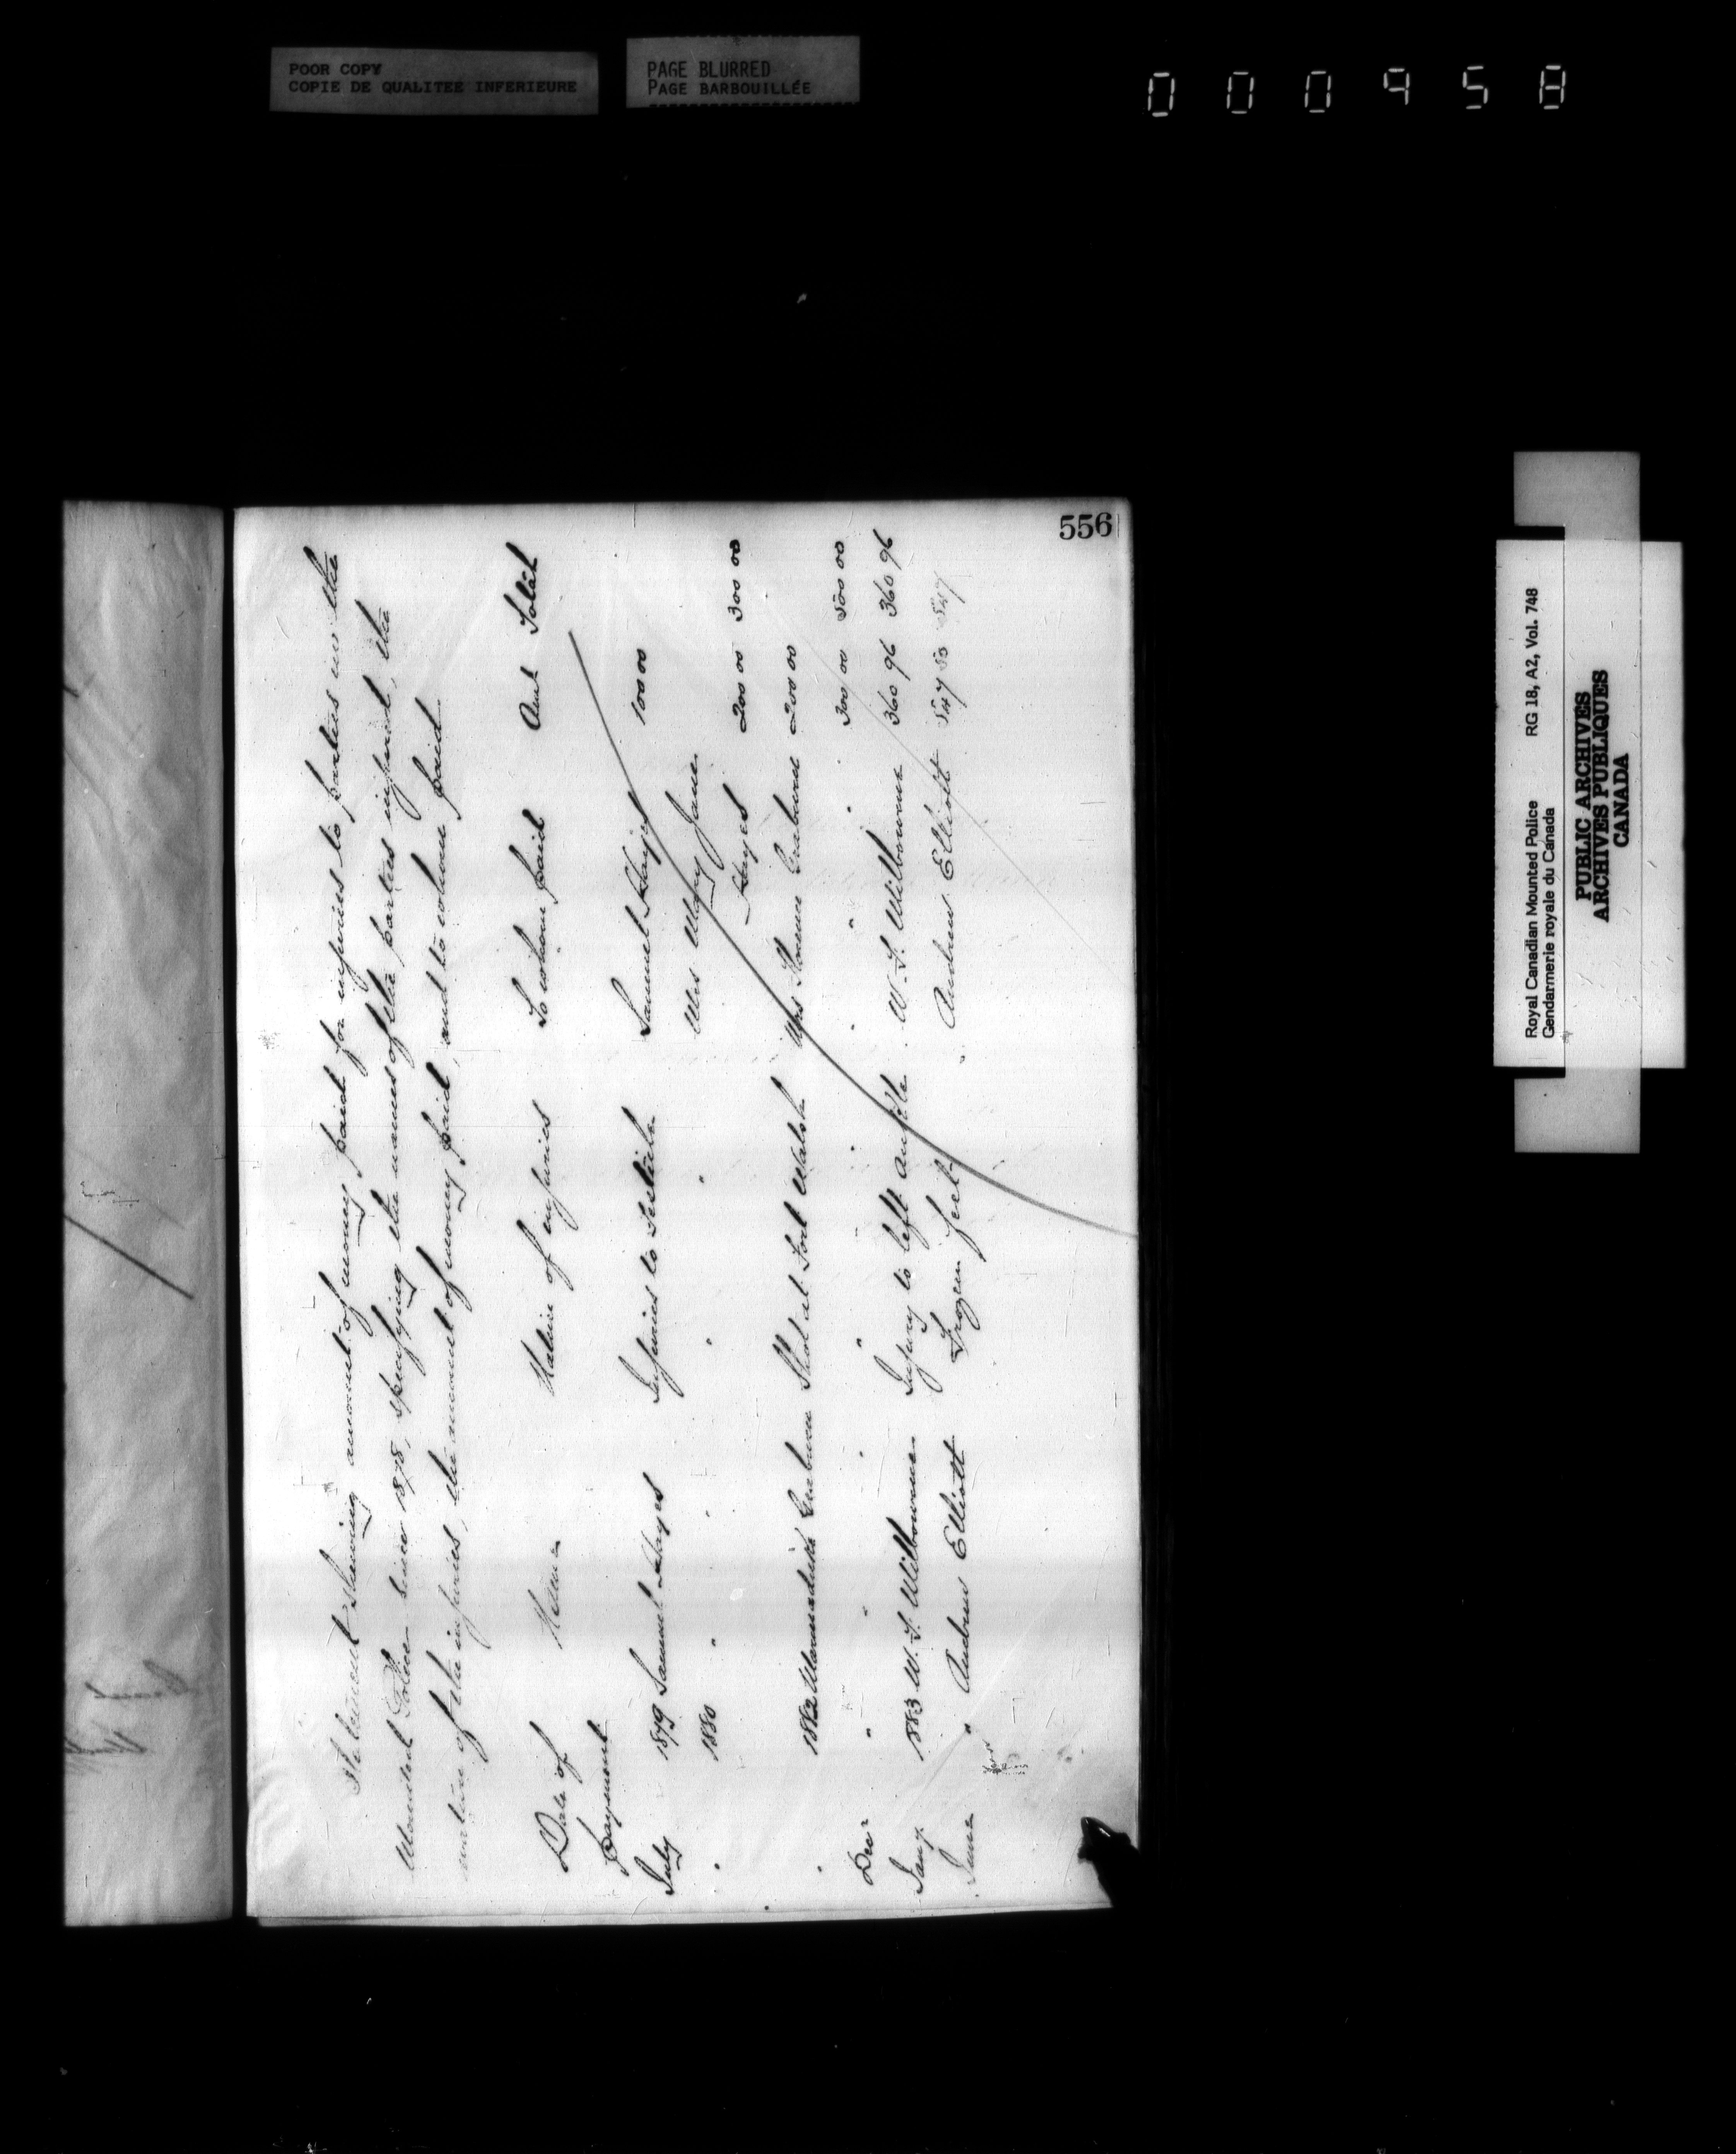 POOR COPY
COPIE DE QUALITEE INFERIEURE
PAGE BLURRED
PAGE BARBOUILLÉE
000958
556
Statement shewing amount of money paid for injuries to parties in the
Mounted Police since 1878, specifying the names of the parties injured, the
nature of the injuries, the amount of money paid, and to whom paid
Date of payment Name Nature of injuries To whom paid Amt Total
July 1879 Samuel Hayes Injuries to Testicle Samuel Hayes 100 00
" 1880 " " " " Mrs Mary Jane
Hayes 200 00 300 00
" 1882 Marmaduke Graburn Shot at Fort Walsh Mrs Graburn 200 00
Decr " " " " " " " 300 00 500 00
Jany 1883 W. S. Wilbourne Injury to left ankle W. S. Wilbourne 360 96 360 96
June " Andrew Elliott Frozen feet Andrew Elliott 547 50 547
Royal Canadian Mounted Police RG 18, A2, Vol. 748
Gendarmerie royale du Canada
PUBLIC ARCHIVES
ARCHIVES PUBLIQUES
CANADA